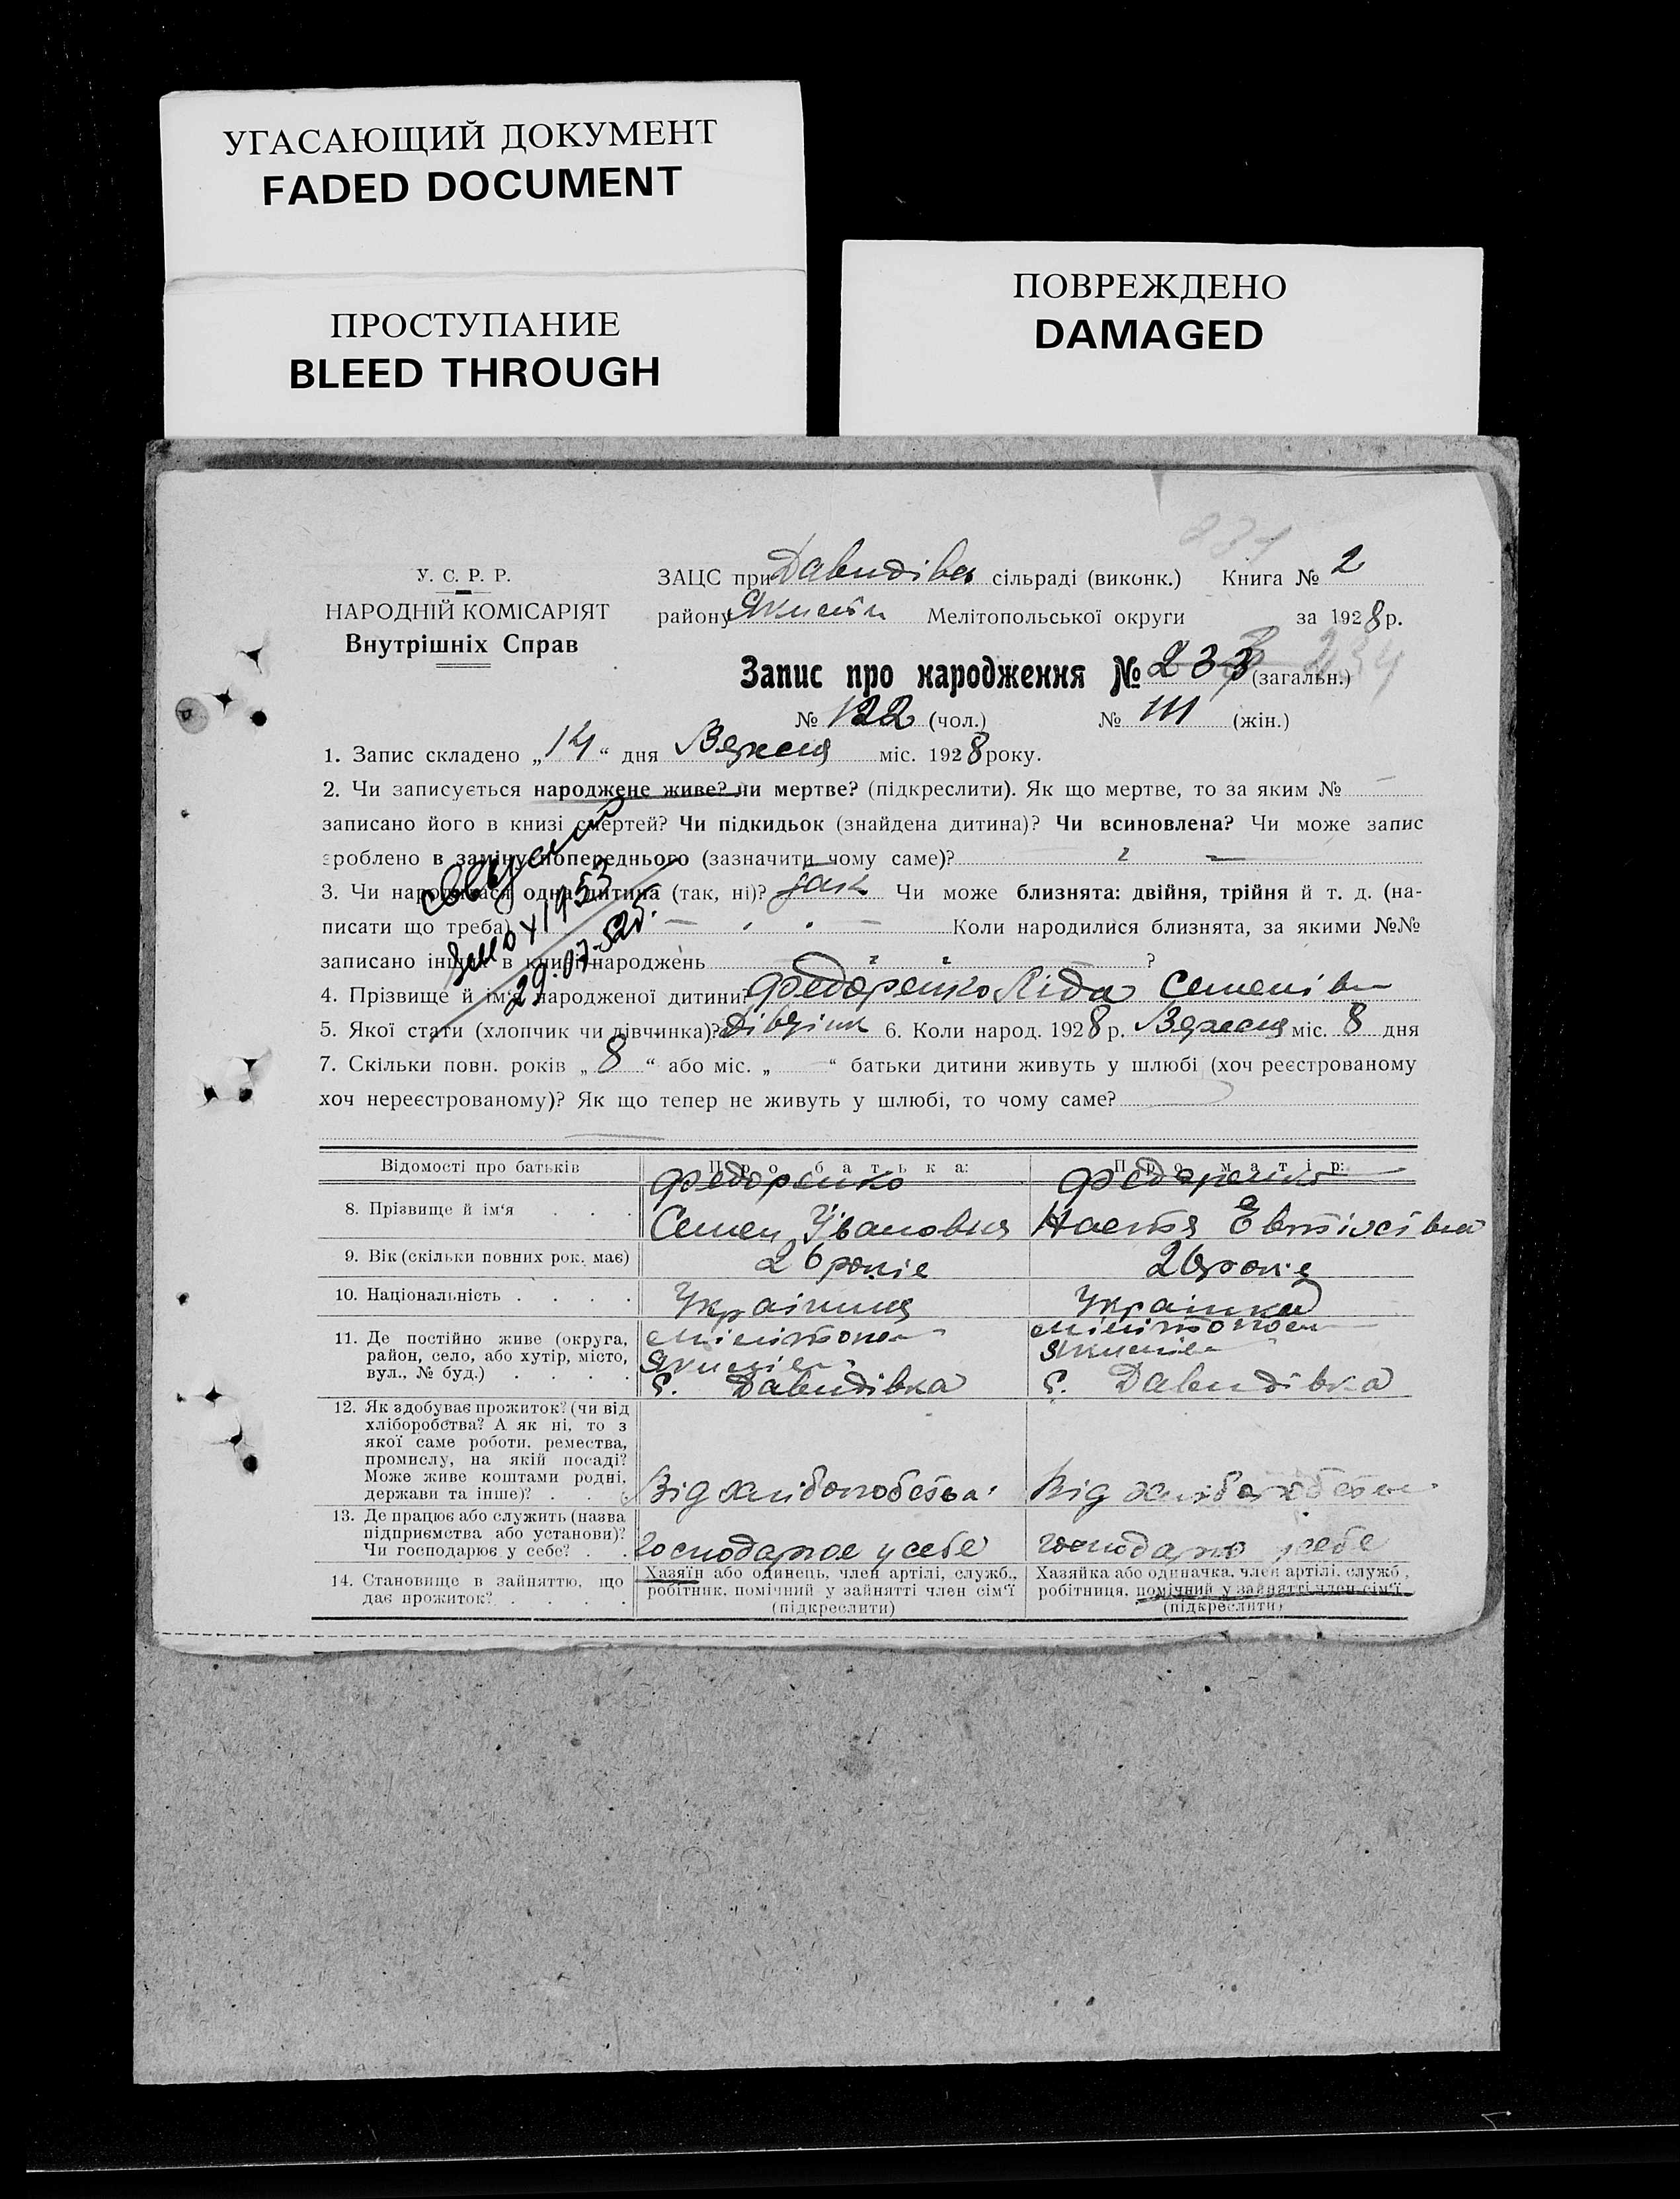 УГАСАЮЩИЙ ДОКУМЕНТ
FADED DOCUMENT
ПРОСТУПАНИЕ
BLEED THROUGH
ПОВРЕЖДЕНО
DAMAGED
У. С. Р. Р.
НАРОДНІЙ КОМІСАРІЯТ
Внутрішніх Справ
ЗАЦС при Давидівс сільраді (виконк.) Книга № 2
району Мелітопольської округи за 1928 р.
Запис про народження № 233 (загальн.)
№ 122 (чол.) № 111 (жін.)
1. Запис складено „14“ дня Вересня міс. 1928 року.
2. Чи записується народжене живе? чи мертве? (підкреслити). Як що мертве, то за яким №
записано його в книзі смертей? Чи підкидьок (знайдена дитина)? Чи всиновлена? Чи може запис
зроблено в заміну попереднього (зазначити чому саме)?
3. Чи народилася одна дитина (так, ні)? так Чи може близнята: двійня, трійня й т. д. (на-
писати що треба) Коли народилися близнята, за якими №№
записано інших в книзі народжень ?
4. Прізвище й ім‘я народженої дитини? Федоренко Ліда Семенівн
5. Якої стати (хлопчик чи дівчинка)? 6. Коли народ. 1928 р. Вересня міс. 8 дня
7. Скільки повн. років „8“ або міс. „ “ батьки дитини живуть у шлюбі (хоч реєстрованому
хоч нереєстрованому)? Як що тепер не живуть у шлюбі, то чому саме?
29.07.52
Відомості про батьків
Про батька:
Про матір:
8. Прізвище й ім‘я
Федоренко
Семен Івановия
Федоренко
Настя
9. Вік (скільки повних рок. має)
26 років
26 років
10. Національність
Українця
Українка
11. Де постійно живе (округа,
район, село, або хутір, місто,
вул., № буд.)
С. Давидівка
С. Давидівка
12. Як здобуває прожиток? (чи від
хліборобства? А як ні, то з
якої саме роботи, ремества,
промислу, на якій посаді?
Може живе коштами родні,
держави та інше)?
Від хліборобства
Від хліборобства
13. Де працює або служить (назва
підприємства або установи)?
Чи господарює у себе?
Господарює у себе
господарює у себе
14. Становище в зайняттю, що
дає прожиток?
Хазяїн або одинець, член артілі, служб.,
робітник, помічний у зайнятті член сім‘ї
(підкреслити)
Хазяйка або одиначка, член артілі, служб.,
робітниця, помічний у зайнятті член сім‘ї
(підкреслити)